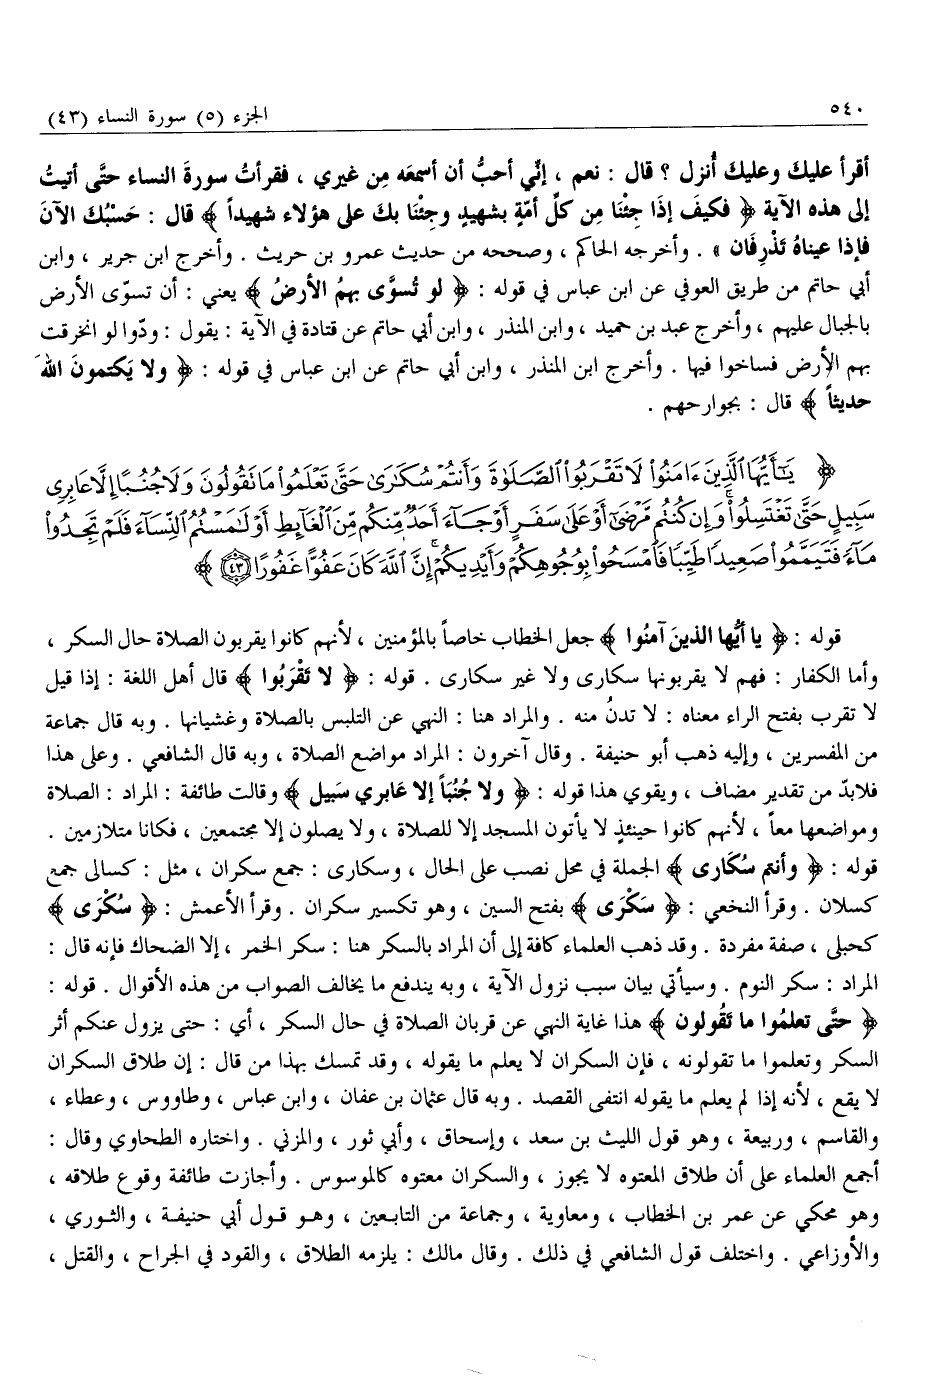 ٥٤٠ الجزء (٥) سورة النساء (٤٣)
أقرأ عليكَ وعليكَ أُنزل ؟ قال : نعم ، إنّي أحبُّ أن أسمعَه مِن غيري ، فقرأتُ سورةَ النساء حتَّى أتيتُ
إلى هذه الآية ﴿ فكيفَ إذَا جِئْنَا مِن كلِّ أمَّةٍ بشهيدٍ وجِئْنَا بكَ على هؤلاء شهيداً ﴾ قال : حَسْبُكَ الآنَ
فإذا عيناهُ تَذْرِفَان » . وأخرجه الحاكم ، وصححه من حديث عمرو بن حريث . وأخرج ابن جرير ، وابن
أبي حاتم من طريق العوفي عن ابن عباس في قوله : ﴿ لو تُسوَّى بهمُ الأرضُ ﴾ يعني : أن تسوّى الأرض
بالجبال عليهم ، وأخرج عبد بن حميد ، وابن المنذر ، وابن أبي حاتم عن قتادة في الآية : يقول : ودّوا لو انخرقت
بهم الأرض فساخوا فيها . وأخرج ابن المنذر ، وابن أبي حاتم عن ابن عباس في قوله : ﴿ ولا يَكتمونَ اللهَ
حديثاً ﴾ قال : بجوارحهم .
﴿ يَٰٓأَيُّهَا ٱلَّذِينَ ءَامَنُوا۟ لَا تَقْرَبُوا۟ ٱلصَّلَوٰةَ وَأَنتُمْ سُكَٰرَىٰ حَتَّىٰ تَعْلَمُوا۟ مَا تَقُولُونَ وَلَا جُنُبًا إِلَّا عَابِرِى
سَبِيلٍ حَتَّىٰ تَغْتَسِلُوا۟ ۚ وَإِن كُنتُم مَّرْضَىٰٓ أَوْ عَلَىٰ سَفَرٍ أَوْ جَآءَ أَحَدٌ مِّنكُم مِّنَ ٱلْغَآئِطِ أَوْ لَٰمَسْتُمُ ٱلنِّسَآءَ فَلَمْ تَجِدُوا۟
مَآءً فَتَيَمَّمُوا۟ صَعِيدًا طَيِّبًا فَٱمْسَحُوا۟ بِوُجُوهِكُمْ وَأَيْدِيكُمْ ۗ إِنَّ ٱللَّهَ كَانَ عَفُوًّا غَفُورًا ٤٣ ﴾
قوله : ﴿ يا أيُّها الذينَ آمنُوا ﴾ جعل الخطاب خاصاً بالمؤمنين ، لأنهم كانوا يقربون الصلاة حال السكر ،
وأما الكفار : فهم لا يقربونها سكارى ولا غير سكارى . قوله : ﴿ لا تَقْرَبُوا ﴾ قال أهل اللغة : إذا قيل
لا تقرب بفتح الراء معناه : لا تدنُ منه . والمراد هنا : النهي عن التلبس بالصلاة وغشيانها . وبه قال جماعة
من المفسرين ، وإليه ذهب أبو حنيفة . وقال آخرون : المراد مواضع الصلاة ، وبه قال الشافعي . وعلى هذا
فلابدّ من تقدير مضاف ، ويقوي هذا قوله : ﴿ ولا جُنُبَاً إلا عَابري سَبيل ﴾ وقالت طائفة : المراد : الصلاة
ومواضعها معاً ، لأنهم كانوا حينئذٍ لا يأتون المسجد إلا للصلاة ، ولا يصلون إلا مجتمعين ، فكانا متلازمين .
قوله : ﴿ وأنتم سُكارى ﴾ الجملة في محل نصب على الحال ، وسكارى : جمع سكران ، مثل : كسالى جمع
كسلان . وقرأ النخعي : ﴿ سَكْرَى ﴾ بفتح السين ، وهو تكسير سكران . وقرأ الأعمش : ﴿ سُكْرَى ﴾
كحبلى ، صفة مفردة . وقد ذهب العلماء كافة إلى أن المراد بالسكر هنا : سكر الخمر ، إلا الضحاك فإنه قال :
المراد : سكر النوم . وسيأتي بيان سبب نزول الآية ، وبه يندفع ما يخالف الصواب من هذه الأقوال . قوله :
﴿ حتَّى تعلمُوا ما تَقُولون ﴾ هذا غاية النهي عن قربان الصلاة في حال السكر ، أي : حتى يزول عنكم أثر
السكر وتعلموا ما تقولونه ، فإن السكران لا يعلم ما يقوله ، وقد تمسك بهذا من قال : إن طلاق السكران
لا يقع ، لأنه إذا لم يعلم ما يقوله انتفى القصد . وبه قال عثمان بن عفان ، وابن عباس ، وطاووس ، وعطاء ،
والقاسم ، وربيعة ، وهو قول الليث بن سعد ، وإسحاق ، وأبي ثور ، والمزني . واختاره الطحاوي وقال :
أجمع العلماء على أن طلاق المعتوه لا يجوز ، والسكران معتوه كالموسوس . وأجازت طائفة وقوع طلاقه ،
وهو محكي عن عمر بن الخطاب ، ومعاوية ، وجماعة من التابعين ، وهو قول أبي حنيفة ، والثوري ،
والأوزاعي . واختلف قول الشافعي في ذلك . وقال مالك : يلزمه الطلاق ، والقود في الجراح ، والقتل ،